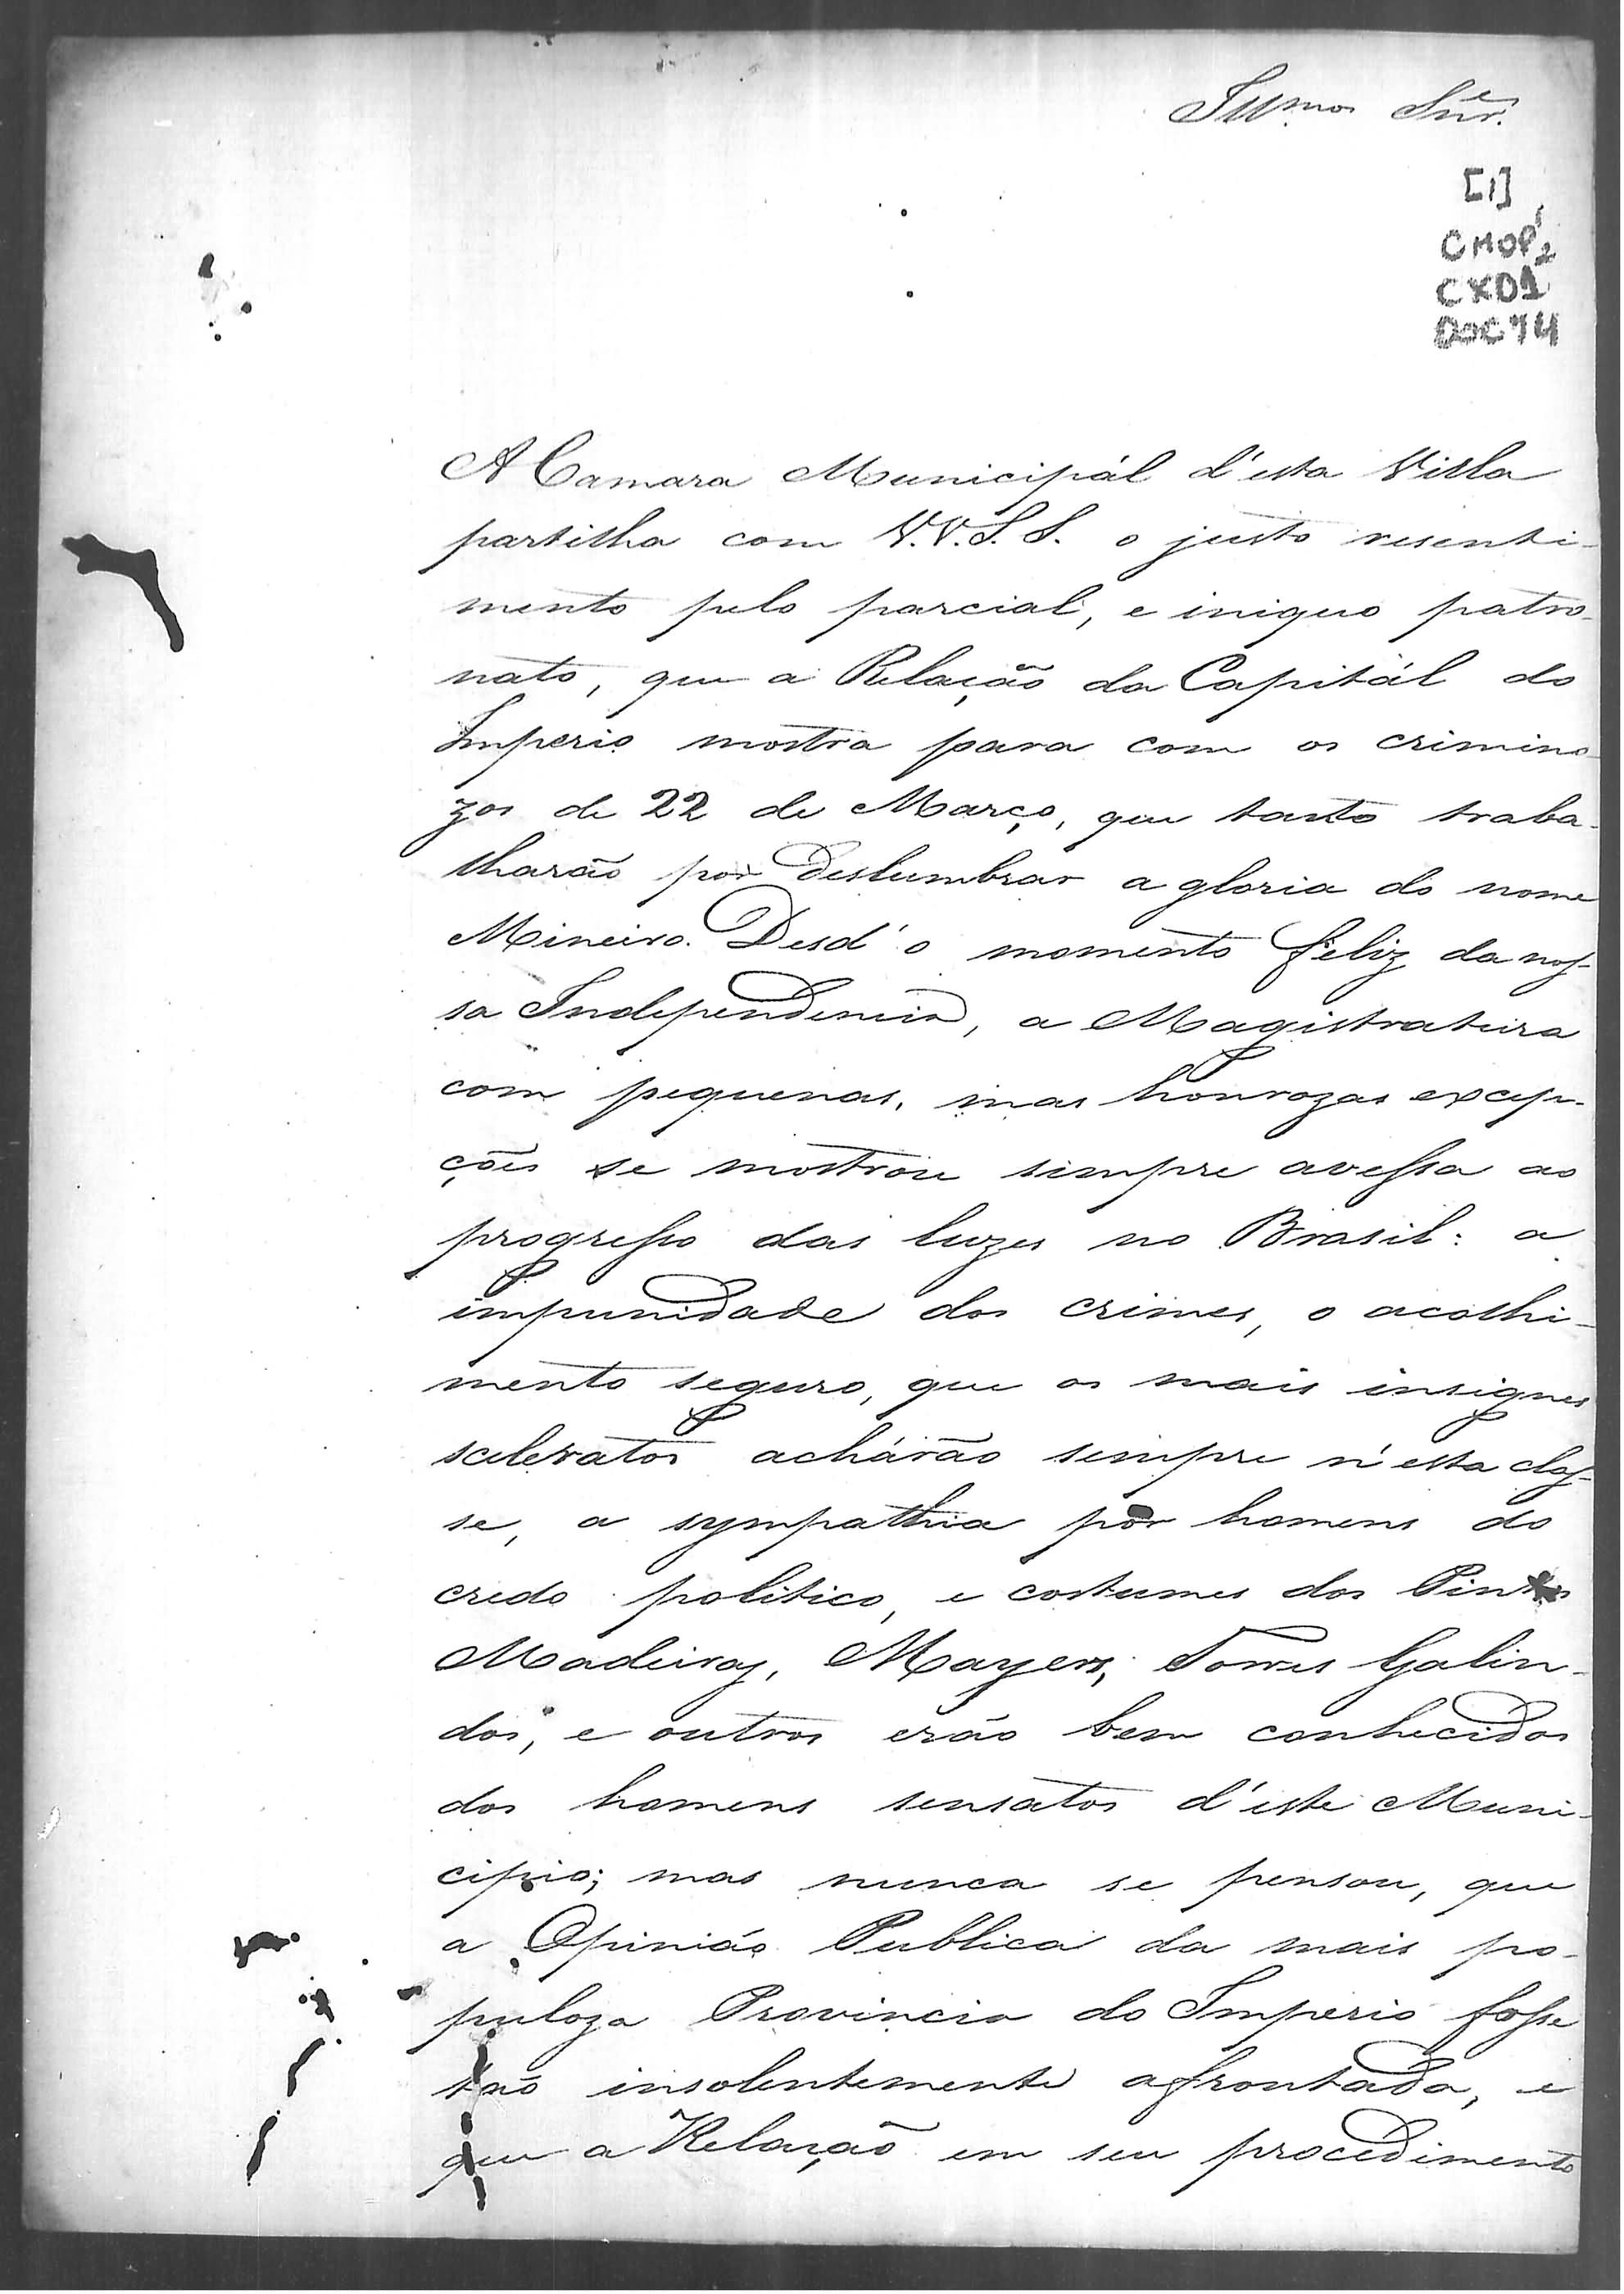 Illmos Snres.
[1]
CMOP 2
CX01
DOC 74
A Camara Municipál d'esta Villa
partilha com V.V.S.S. o justo resenti-
mento pelo parcial, e iniquo patro-
nato, que a Relação da Capitál do
Imperio mostra para com os crimino-
zos de 22 de Março, que tanto traba-
lharão por deslumbrar a gloria do nome
Mineiro. Desd'o momento feliz da nos-
sa Independencia, a Magistratura
com pequenas, mas honrozas excep-
ções se mostrou sempre avessa ao
progresso das luzes no Brasil: a
impunidade dos crimes, o acolhi-
mento seguro, que os mais insignes
sceleratos achárão sempre n'esta clas-
se, a sympathia por homens do
credo politico, e costumes dos Pintos
Madeiras, Mayers, Torres Galin-
dos, e outros erão bem conhecidos
dos homens sensatos d'este Muni-
cipio; mas nunca se pensou, que
a Opinião Publica da mais po-
puloza Provincia do Imperio fosse
tão insolentemente afrontada, e
que a Relação em seu procedimento